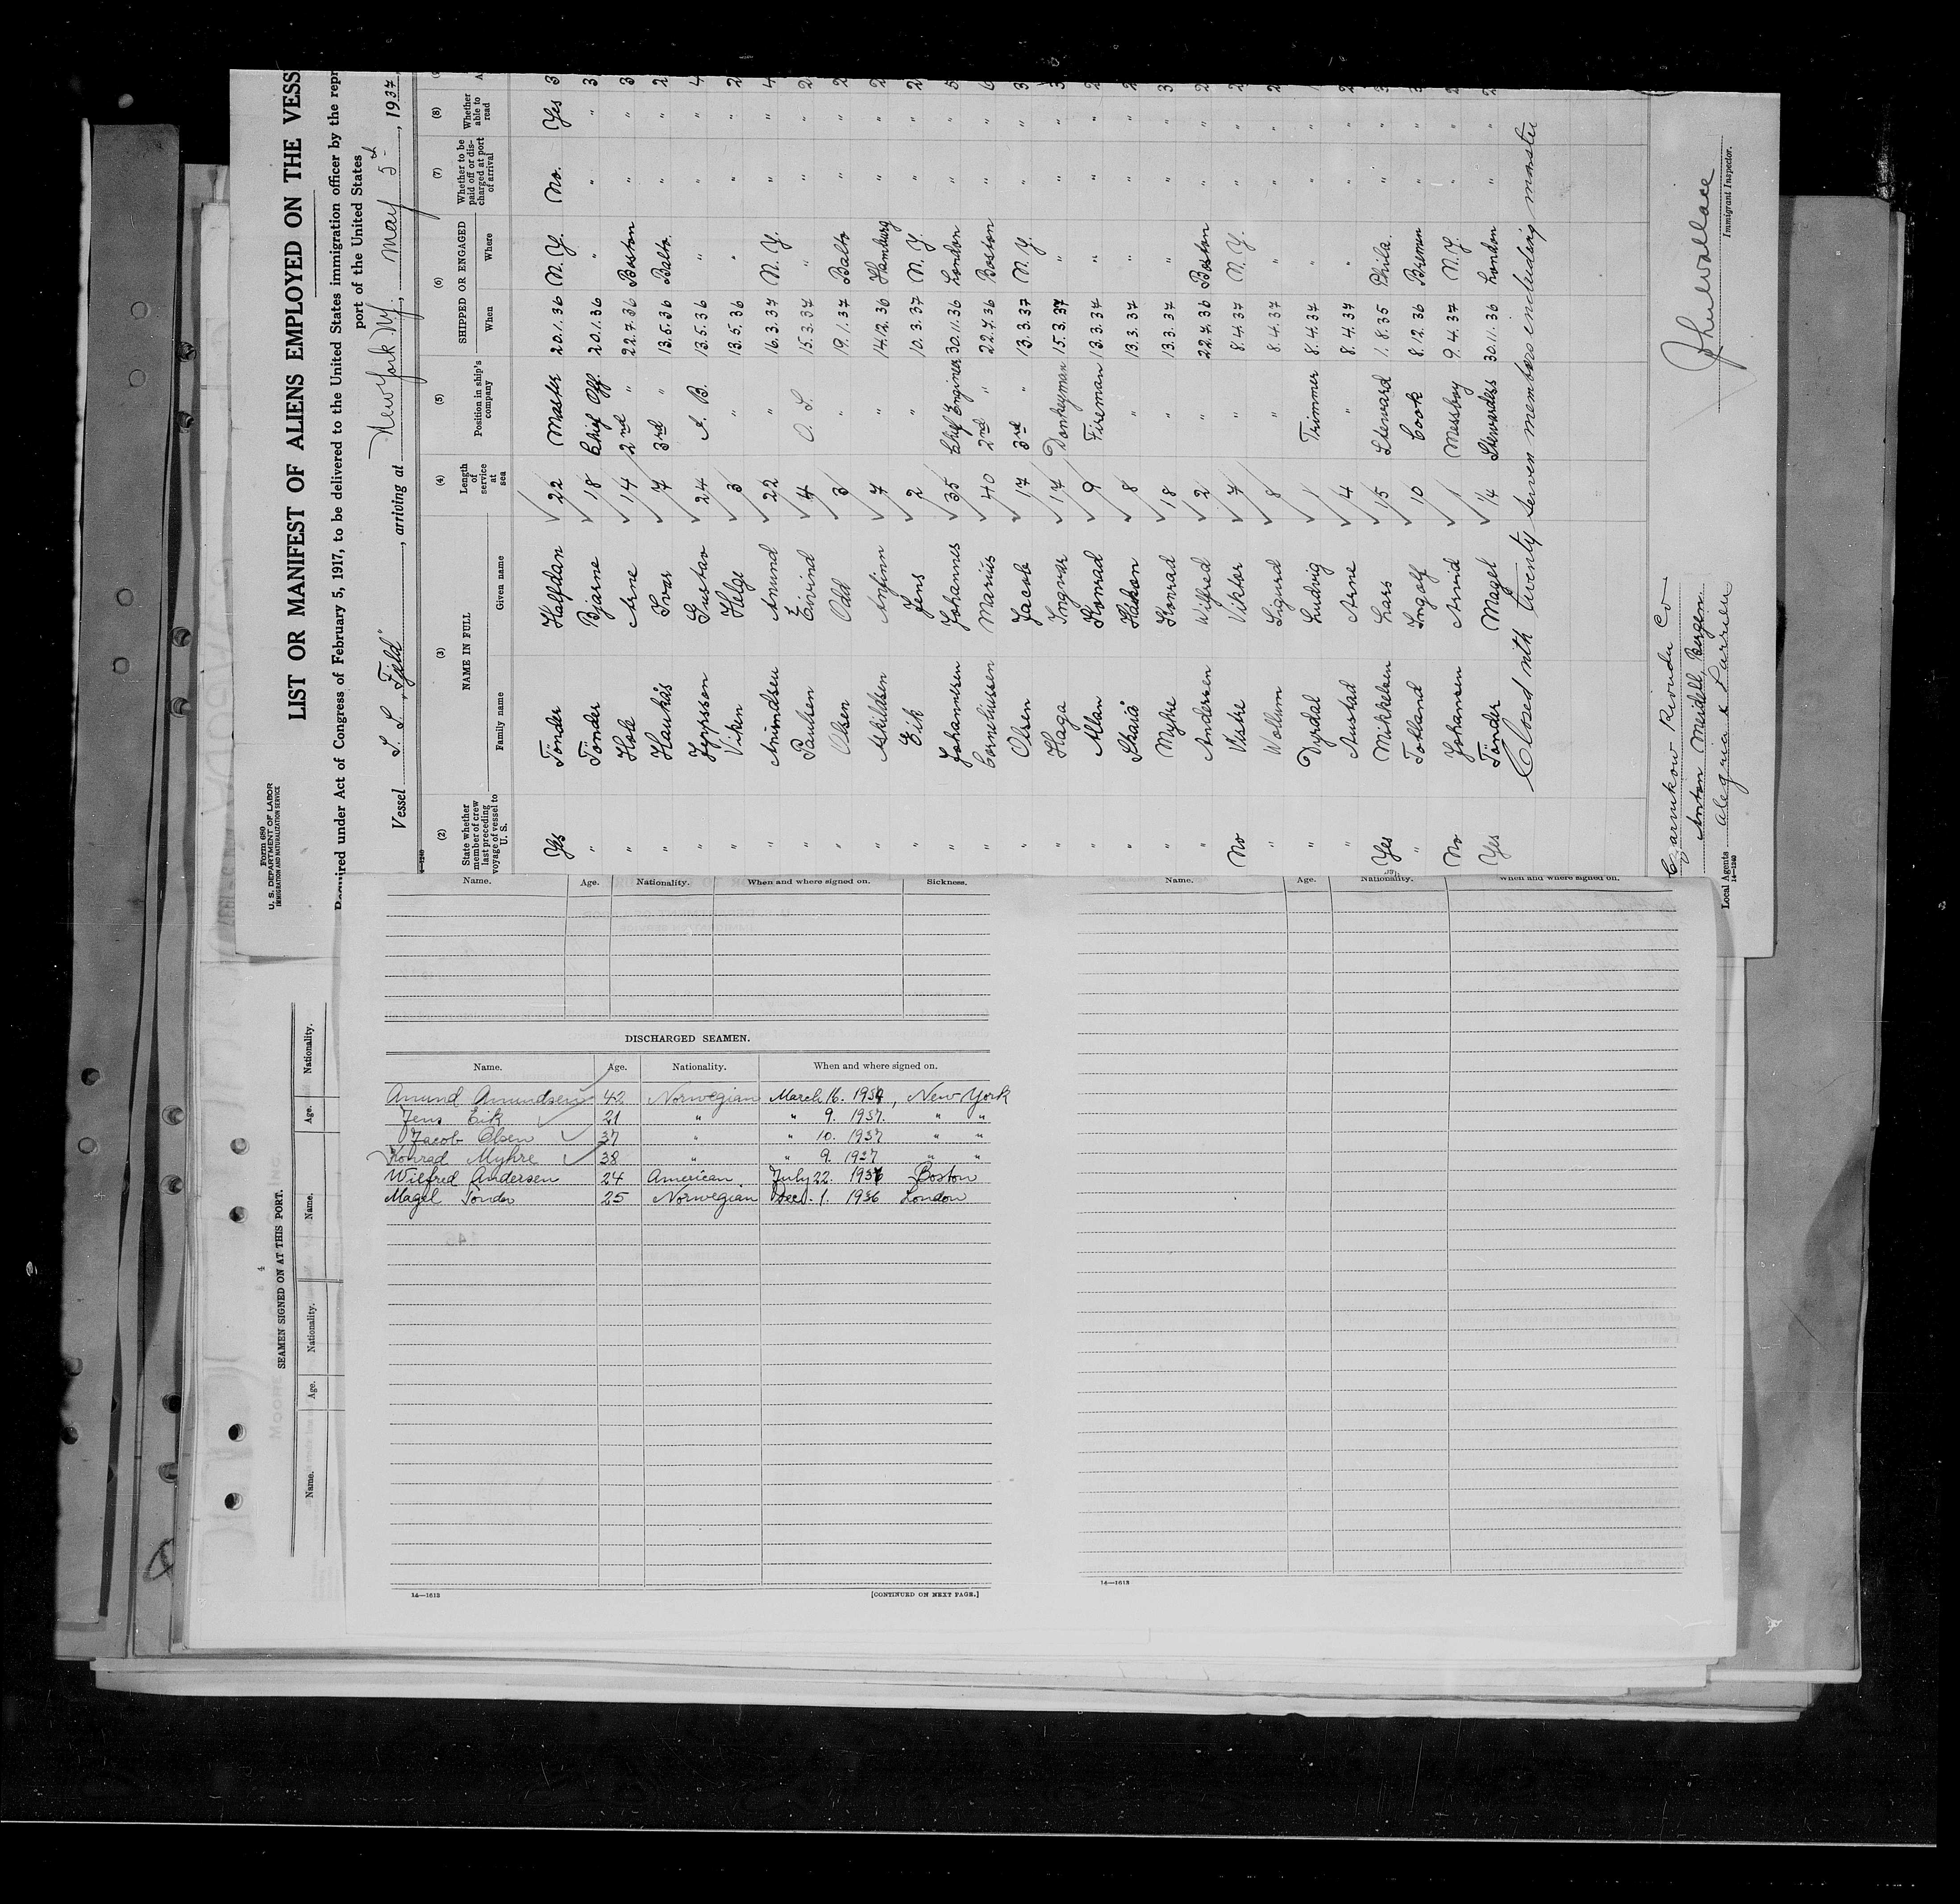 Form 680
U. S. DEPARTMENT OF LABOR
IMMIGRATION AND NATURALIZATION SERVICE
LIST OR MANIFEST OF ALIENS EMPLOYED ON THE VESS
Required under Act of Congress of February 5, 1917, to be delivered to the United States immigration officer by the repr
port of the United States
Vessel S. S. "Fjeld", arriving at New York Ny., May 5th, 1937
(2) (3) (4) (5) (6) (7) (8)
State whether member of crew last preceding voyage of vessel to U. S. NAME IN FULL Family name Given name Length of service at sea Position in ship's company SHIPPED OR ENGAGED When Where Whether to be paid off or discharged at port of arrival Whether able to read
Yes Tönder Halfdan 22 Master 20.1.36 N.Y. No. Yes 3
" Tönder Bjarne 18 Chief Off. 20.1.36 " " " 3
" Arne 14 2nd " 22.7.36 Boston " " 3
" Haukås Ivar 7 3rd " 13.5.36 Balto. " " 2
" Gustav 24 A. B. 13.5.36 " " " 4
" Viken Helge 3 " 13.5.36 " " " 2
" Amundsen Amund 22 " 16.3.37 N.Y. " " 4
" Paulsen Eivind 4 O. S. 15.3.37 " " " 2
" Olsen Odd 3 " 19.1.37 Balto " " 2
" Askildsen Anfinn 7 " 14.12.36 Hamburg " " 2
" Eik Jens 2 " 10.3.37 N.Y. " " 2
" Johannesen Johannes 35 Chief Engineer 30.11.36 London " " 5
" Corneliussen Marius 40 2nd " 22.7.36 Boston " " 6
" Olsen Jacob 17 3rd " 13.3.37 N.Y. " " 3
" Haga Ingvar 17 Donkeyman 15.3.37 " " " 3
" Konrad 9 Fireman 13.3.37 " " " 2
" Håkon 8 " 13.3.37 " " " 2
" Myhre Konrad 18 " 13.3.37 " " " 3
" Andersen Wilfred 2 " 22.7.36 Boston " " 2
No Viktor 7 " 8.4.37 N.Y. " " 2
" Wollum Sigurd 8 " 8.4.37 " " " 2
" Dyrdal Ludvig 1 Trimmer 8.4.37 " " "
" Austad Arne 4 " 8.4.37 " " " 2
Yes Mikkelsen Lars 15 Steward 1.8.35 Phila. " " 3
" Tolland Ingolf 10 Cook 8.12.36 Bremen " " 3
No Johansen Arvid 1 Messboy 9.4.37 N.Y. " " 2
Yes Tönder Magel 1/4 Stewardess 30.11.36 London " " 2
Closed with twenty seven members including master
Czarnikow Rionda Co
Anton Meidell, Bergen
Local Agents
14-1240
Immigrant Inspector.
Name. Age. Nationality. When and where signed on. Sickness.
DISCHARGED SEAMEN.
Name. Age. Nationality. When and where signed on.
Amund Amundsen 42 Norwegian March 16. 1937, New York
Jens Eik 21 " " 9. 1937. " "
Jacob Olsen 37 " " 10. 1937 " "
Konrad Myhre 38 " " 9. 1937 " "
Wilfred Andersen 24 American July 22. 1936 Boston
Magel Tonder 25 Norwegian Dec. 1. 1936 London
14—1613 [CONTINUED ON NEXT PAGE.]
Name. Age. Nationality. When and where signed on.
14—1613
4
SEAMEN SIGNED ON AT THIS PORT.
Name. Age. Nationality. Name. Age. Nationality.